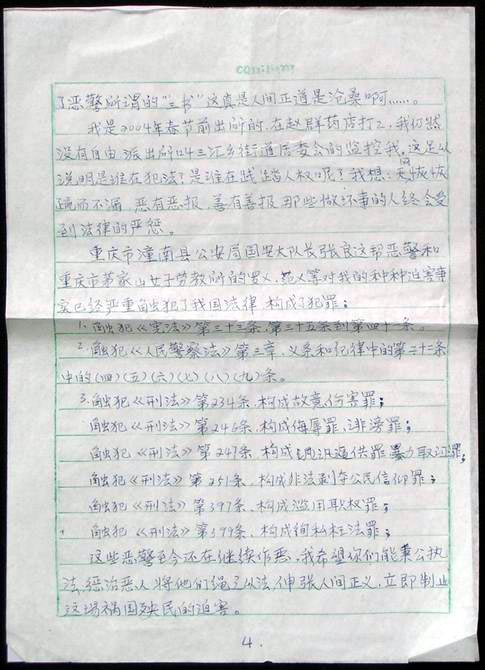 了恶警所谓的“三书”这真是人间正道是沧桑啊……。
我是2004年春节前出所的,在赵群药店打工,我仍然
没有自由,派出所叫三汇乡街道居委会的监控我,这足以
说明是谁在犯法?是谁在践踏人权呢?我想:天网恢恢
疏而不漏,恶有恶报,善有善报,那些做坏事的人终会受
到法律的严惩。
重庆市潼南县公安局国安大队长张良这帮恶警和
重庆市茅家山女子劳教所的等对我的种种迫害事
实已经严重触犯了我国法律,构成了犯罪;
1.触犯《宪法》第三十三条、第三十五条到第四十一条。
2.触犯《人民警察法》第三章,义务和纪律中的第二十二条
中的(四)(五)(六)(七)(八)(九)条。
3.触犯《刑法》第234条、构成故意伤害罪;
触犯《刑法》第246条、构成侮辱罪、诽谤罪;
触犯《刑法》第247条、构成刑讯逼供罪 暴力取证罪;
触犯《刑法》第251条、构成非法剥夺公民信仰罪;
触犯《刑法》第397条、构成滥用职权罪;
触犯《刑法》第399条、构成徇私枉法罪;
这些恶警至今还在继续作恶,我希望你们能秉公执
法,惩治恶人,将他们绳之以法,伸张人间正义,立即制止
这场祸国殃民的迫害。
4.